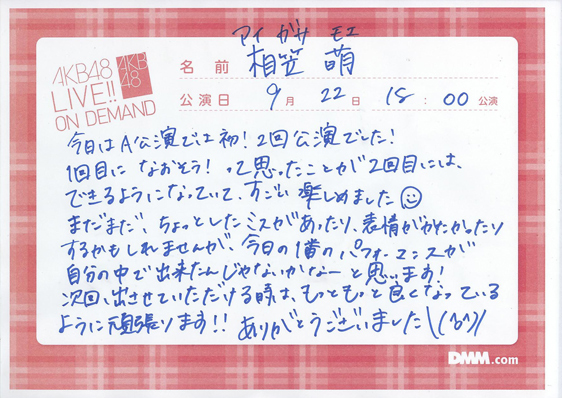 アイ がサ モエ
AKB48
LIVE!!
ON DEMAND
AKB
48
名 前 相笠 萌
公演日 9 月 22 日 18 : 00 公演
今日はA公演では初!2回公演でした!
1回目に なおそう!って思ったことが2回目には、
できるようになっていて、すごい 楽しめました☺
まだまだ、ちょっとしたミスがあったり、表情がかたかったり
するかもしれませんが、今日の1番のパフォーマンスが
自分の中で出来たんじゃないかなーと思います!
次回、出させていただける時は、もっともっと良くなっている
ように頑張ります!! ありがとうございました\(^o^)/
DMM.com